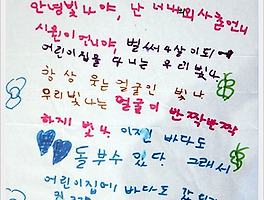 안녕 빛나야, 난 너의 사촌언니
시원이 언니야, 벌써 4살이 되
어린이집을 다니는 우리 빛나.
항상 웃는 얼굴인 빛나
우리 빛나는 얼굴이 반짝반짝
하지 빛나 이젠 바다도
돌부수 있다. 그래서
어린이집에 바다도